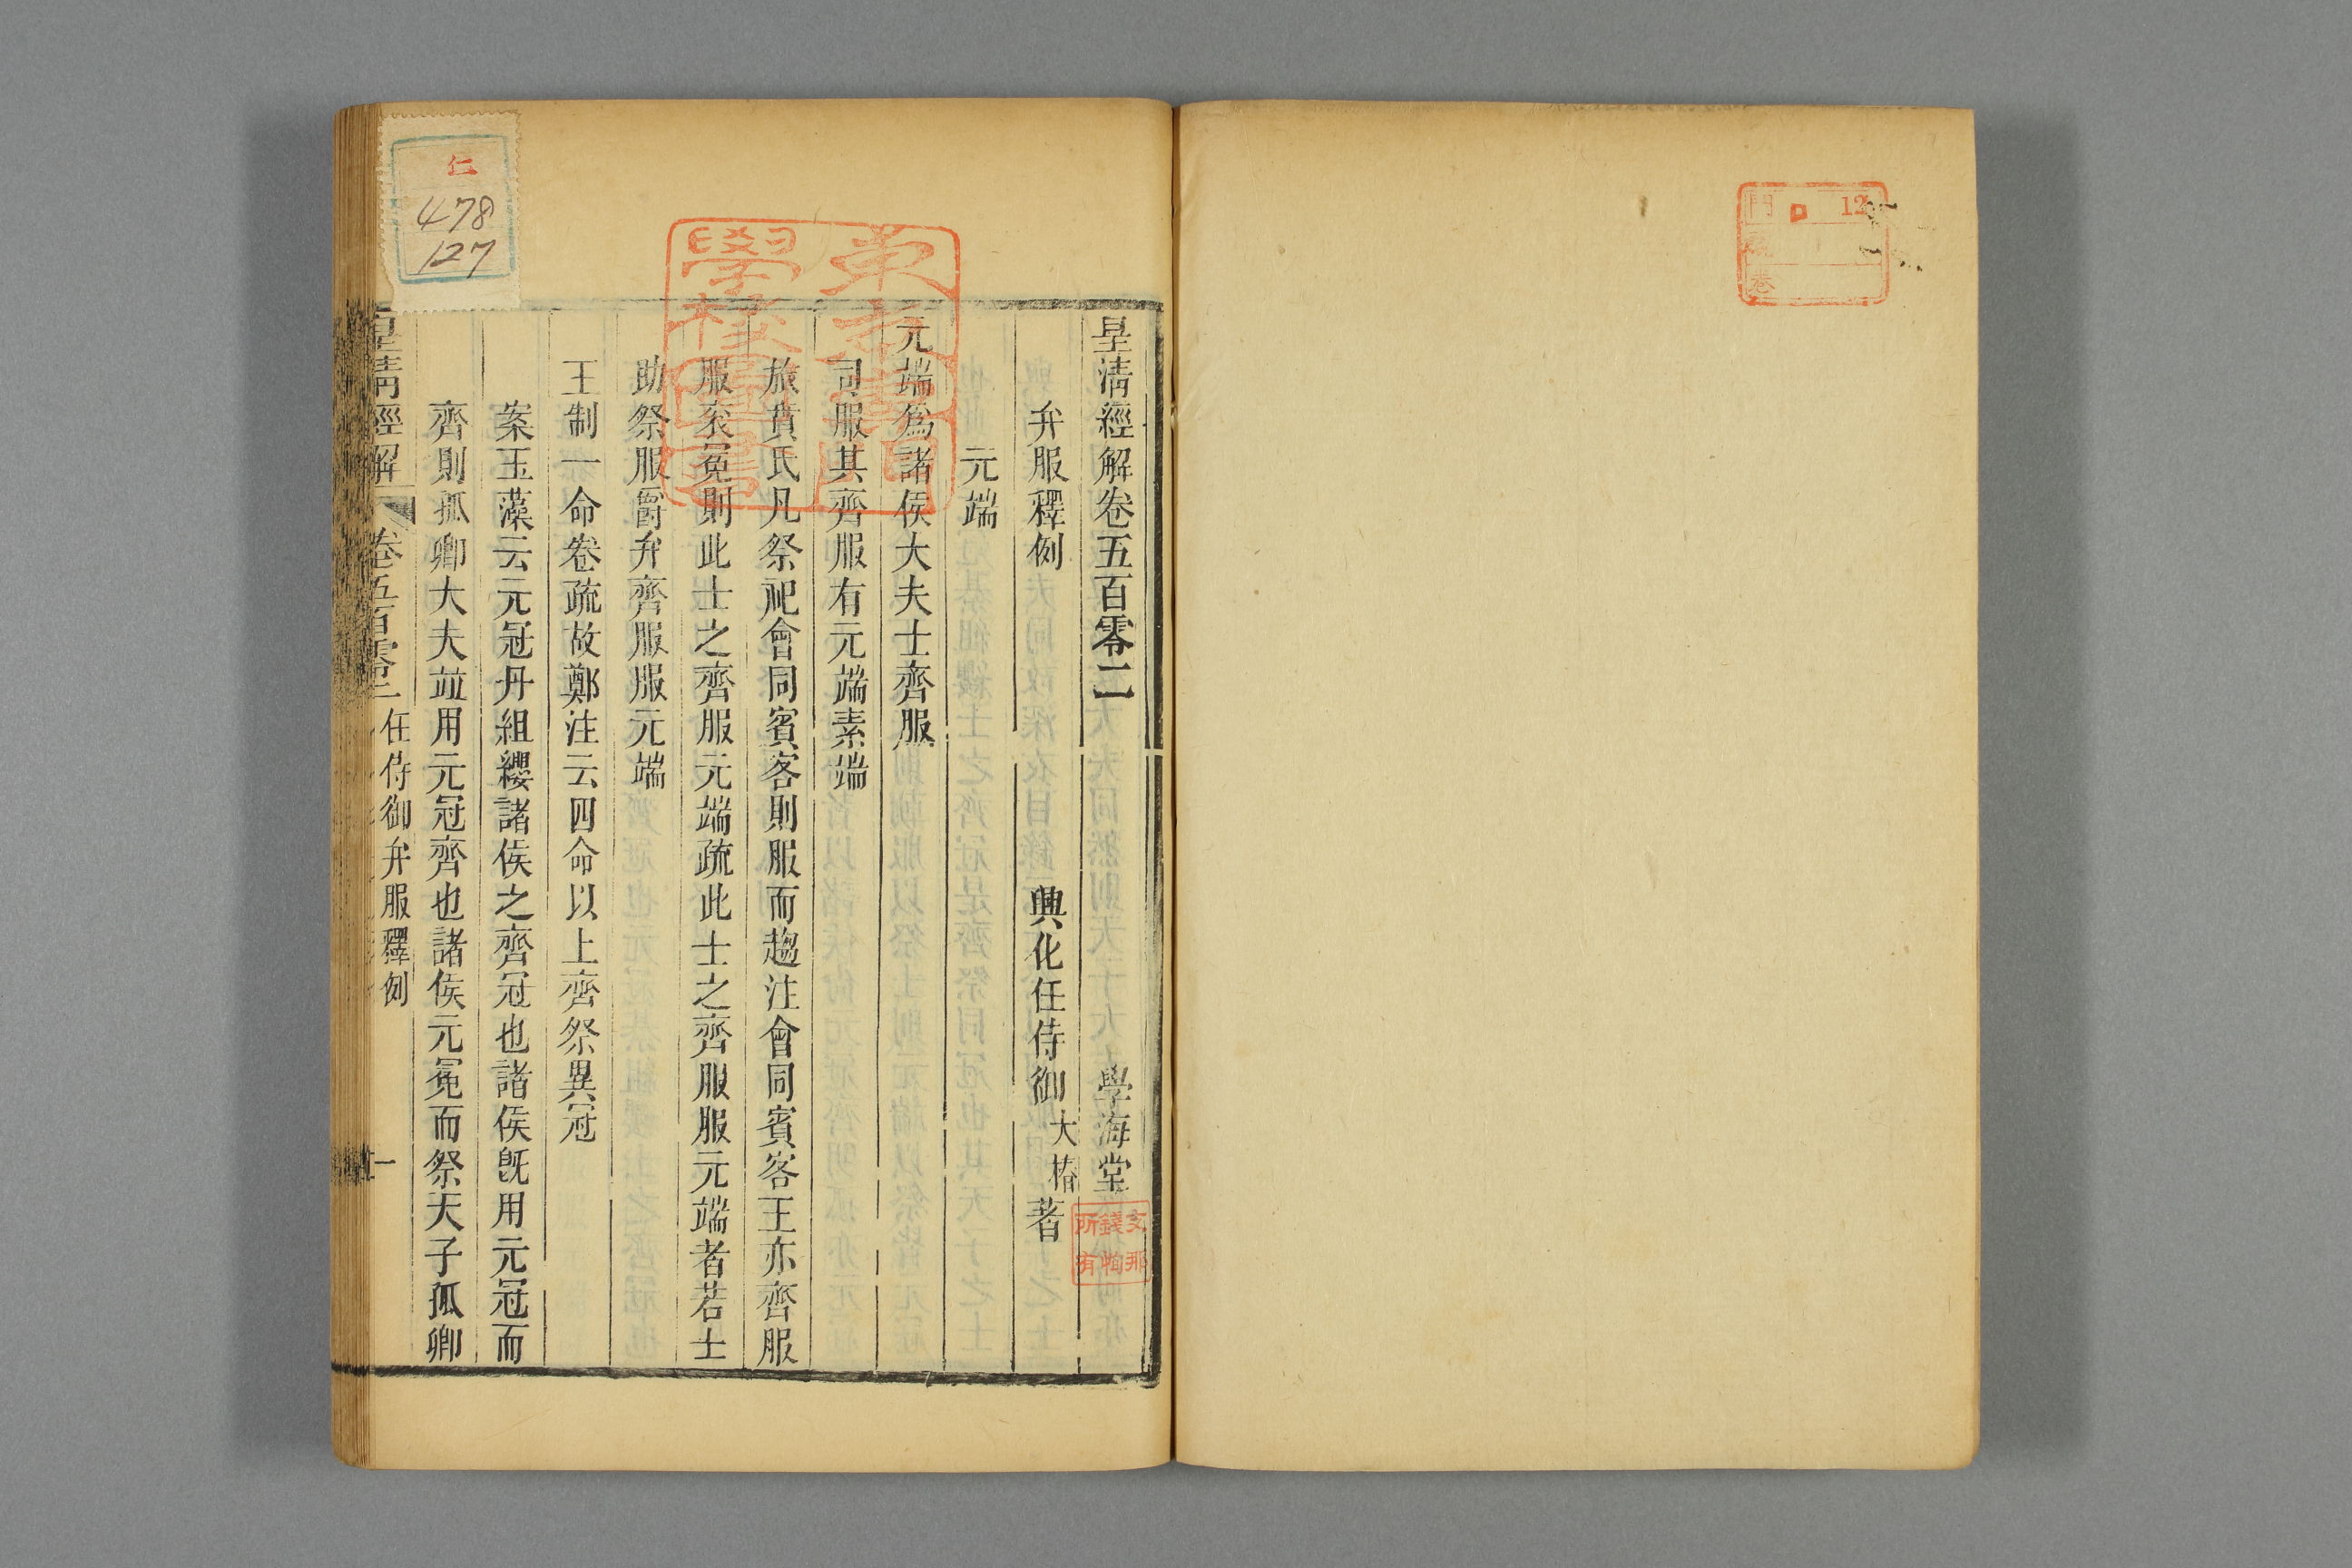 皇清經解卷五百零二 學海堂
弁服釋例 興化任侍御大椿著
元端
元端爲諸侯大夫士齊服
司服其齊服有元端素端
旅賁氏凡祭祀會同賓客則服而趨注會同賓客王亦齊服
服衮冕則此士之齊服元端疏此士之齊服服元端者若士
助祭服爵弁齊服服元端
王制一命卷疏故鄭注云四命以上齊祭異冠
案玉藻云元冠丹組纓諸侯之齊冠也諸侯旣用元冠而
齊則孤卿大夫並用元冠齊也諸侯元冕而祭天子孤卿
皇清經解 卷五百零二 任侍御弁服釋例 一
仁
478
127
學校圖書
文那
錢恂
所有
門 12
號
卷